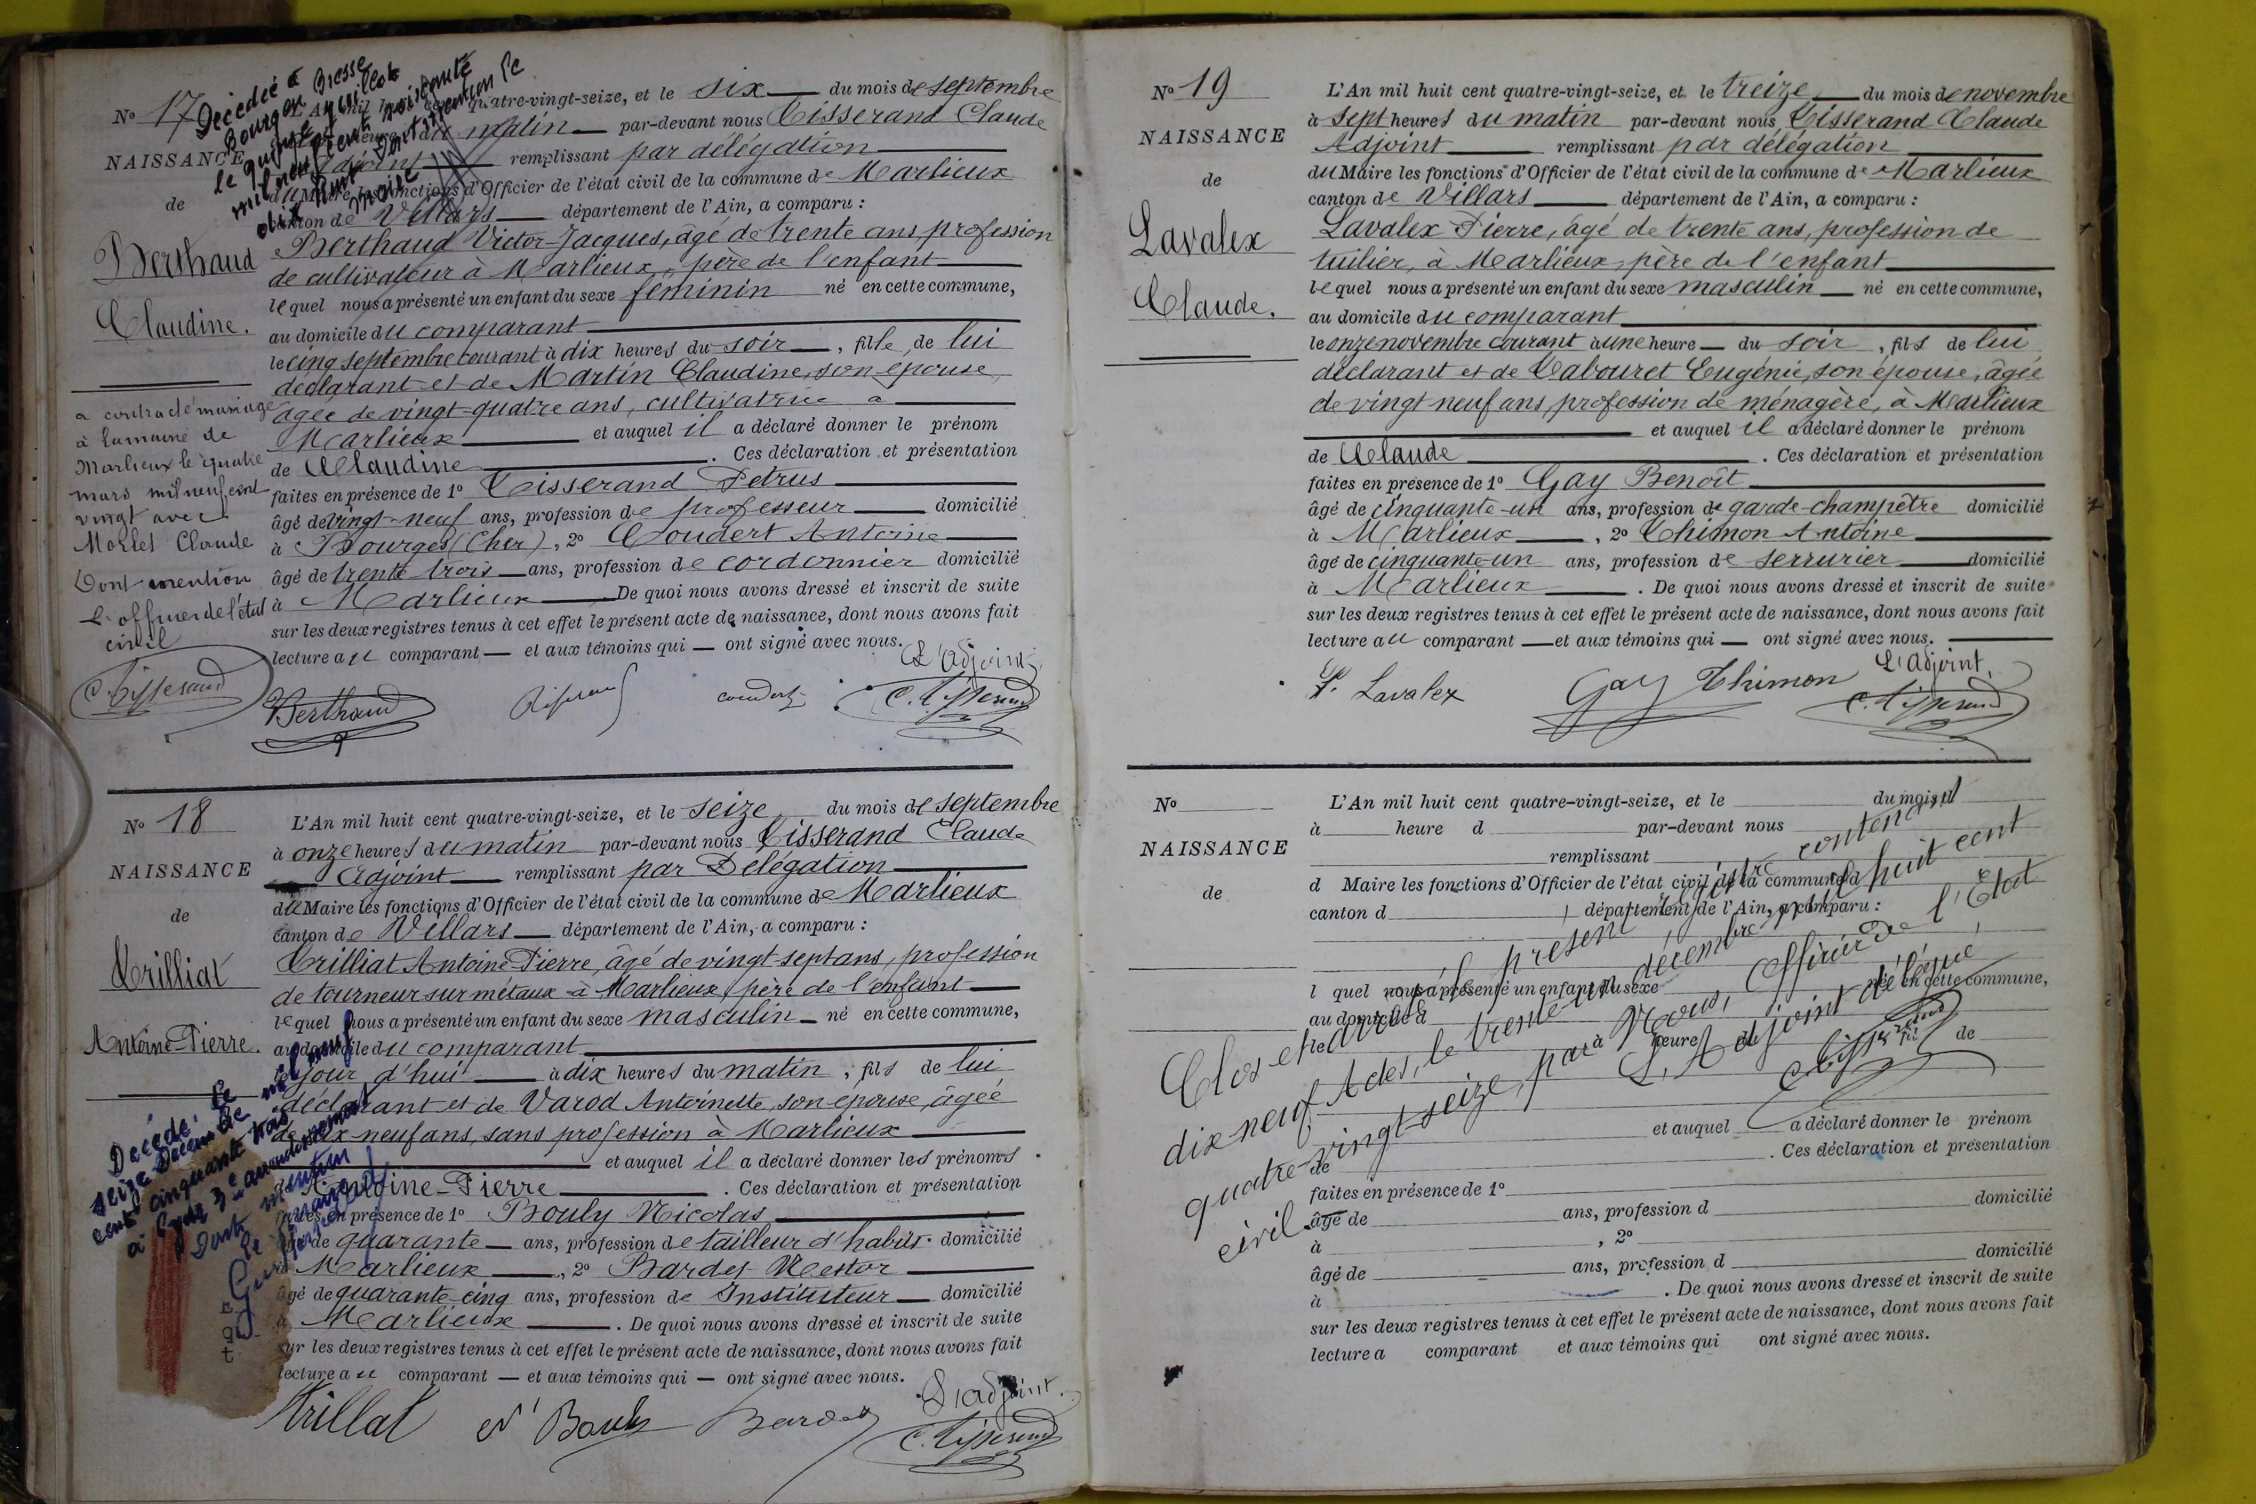 Nº 17
NAISSANCE
de
Berthaud
Claudine.
Décédée à
Bourg en Bresse
le quinze juillet
mil neuf cent soixante
dix huit Dont mention le
a contracté mariage
à la mairie de
Marlieux le quatre
mars mil neuf cent
vingt avec
Morlet Claude
Dont mention
L'officier de l'état
civil
C. Tisserand
quatre-vingt-seize, et le six du mois de septembre
matin par-devant nous Tisserand Claude
Adjoint remplissant par délégation
du Maire les fonctions d'Officier de l'état civil de la commune de Marlieux
canton de Villars département de l'Ain, a comparu :
Berthaud Victor-Jacques, âgé de trente ans, profession
de cultivateur à Marlieux, père de l'enfant
lequel nous a présenté un enfant du sexe féminin né en cette commune,
au domicile du comparant
le cinq septembre courant à dix heures du soir, fille de lui
déclarant et de Martin Claudine, son épouse,
âgée de vingt-quatre ans, cultivatrice à
Marlieux et auquel il a déclaré donner le prénom
de Claudine. Ces déclaration et présentation
faites en présence de 1º Tisserand Petrus
âgé de vingt-neuf ans, profession de professeur domicilié
à Bourges (Cher), 2º Coudert Antoine
âgé de trente trois ans, profession de cordonnier domicilié
à Marlieux De quoi nous avons dressé et inscrit de suite
sur les deux registres tenus à cet effet le présent acte de naissance, dont nous avons fait
lecture au comparant et aux témoins qui ont signé avec nous.
L'adjoint,
Berthaud coudert C. Tisserand
Nº 18
NAISSANCE
de
Trilliat
Antoine-Pierre.
Décédé le
seize Décembre mil neuf
cent cinquante trois
à Lyon 3e arrondissement
Dont mention
L'An mil huit cent quatre-vingt-seize, et le seize du mois de septembre
à onze heures du matin par-devant nous Tisserand Claude
Adjoint remplissant par Délégation
du Maire les fonctions d'Officier de l'état civil de la commune de Marlieux
canton de Villars département de l'Ain, a comparu :
Trilliat Antoine-Pierre, âgé de vingt-sept ans, profession
de tourneur sur métaux à Marlieux, père de l'enfant
lequel nous a présenté un enfant du sexe masculin né en cette commune,
au domicile du comparant
jour d'hui à dix heures du matin, fils de lui
déclarant et de Varod Antoinette, son épouse, âgée
de dix-neuf ans, sans profession à Marlieux
et auquel il a déclaré donner les prénoms
Antoine-Pierre. Ces déclaration et présentation
faites en présence de 1º Bouly Nicolas
âgé de quarante ans, profession de tailleur d'habits. domicilié
à Marlieux, 2º Bardet Nestor
âgé de quarante-cinq ans, profession de Instituteur domicilié
à Marlieux. De quoi nous avons dressé et inscrit de suite
sur les deux registres tenus à cet effet le présent acte de naissance, dont nous avons fait
lecture au comparant et aux témoins qui ont signé avec nous.
L'adjoint.
Trillat N Bouly Bardet C. Tisserand
Nº 19
NAISSANCE
de
Lavalex
Claude.
L'An mil huit cent quatre-vingt-seize, et le treize du mois de novembre
à sept heures du matin par-devant nous Tisserand Claude
Adjoint remplissant par délégation
du Maire les fonctions d'Officier de l'état civil de la commune de Marlieux
canton de Villars département de l'Ain, a comparu :
Lavalex Pierre, âgé de trente ans, profession de
tuilier, à Marlieux, père de l'enfant
lequel nous a présenté un enfant du sexe masculin né en cette commune,
au domicile du comparant
le onze novembre courant à une heure du soir, fils de lui
déclarant et de Tabouret Eugénie, son épouse, âgée
de vingt-neuf ans, profession de ménagère, à Marlieux
et auquel il a déclaré donner le prénom
de Claude. Ces déclaration et présentation
faites en présence de 1º Gay Benoît
âgé de cinquante-un ans, profession de garde-champêtre domicilié
à Marlieux, 2º Thimon Antoine
âgé de cinquante-un ans, profession de serrurier domicilié
à Marlieux. De quoi nous avons dressé et inscrit de suite
sur les deux registres tenus à cet effet le présent acte de naissance, dont nous avons fait
lecture au comparant et aux témoins qui ont signé avec nous.
L'adjoint,
P. Lavalex Gay Thimon C. Tisserand
Nº
NAISSANCE
de
L'An mil huit cent quatre-vingt-seize, et le du mois d
à heure d par-devant nous
remplissant
d Maire les fonctions d'Officier de l'état civil de la commune d
canton d département de l'Ain, a comparu :
l quel nous a présenté un enfant du sexe né en cette commune,
au domicile d
le à heure d fil de
et auquel a déclaré donner le prénom
de . Ces déclaration et présentation
faites en présence de 1º
âgé de ans, profession d domicilié
à , 2º
âgé de ans, profession d domicilié
à . De quoi nous avons dressé et inscrit de suite
sur les deux registres tenus à cet effet le présent acte de naissance, dont nous avons fait
lecture a comparant et aux témoins qui ont signé avec nous.
Clos et arrêté le présent registre contenant
dix-neuf Actes, le trente-un décembre mil huit cent
quatre-vingt-seize, par Nous, Officier de l'Etat
civil. L'Adjoint délégué,
C. Tisserand